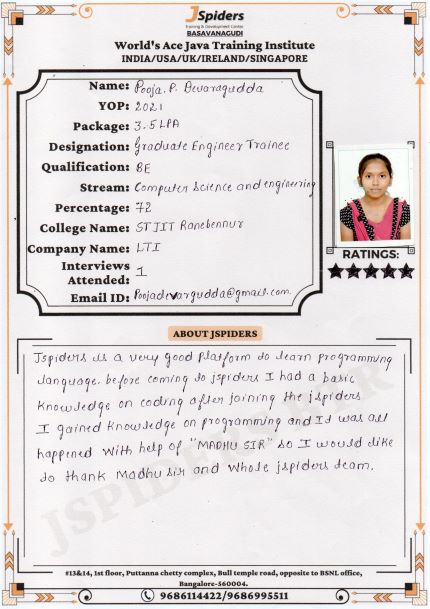 JSpiders
Training & Development Center
BASAVANAGUDI
World's Ace Java Training Institute
INDIA/USA/UK/IRELAND/SINGAPORE
Name: Pooja. P. Devaragudda
YOP: 2021
Package: 3.5 LPA
Designation: Graduate Engineer Trainee
Qualification: BE
Stream: Computer Science and engineering
Percentage: 72
College Name: STJIT Ranebennur
Company Name: LTI
Interviews Attended: 1
Email ID: Poojadevargudda@gmail.com
RATINGS:
ABOUT JSPIDERS
Jspiders is a very good platform to learn programming
language. before coming to jspiders I had a basic
knowledge on coding after joining the jspiders
I gained knowledge on programming and It was all
happened with help of "MADHU SIR" so I would like
to thank Madhu sir and whole jspiders team.
#13&14, 1st floor, Puttanna chetty complex, Bull temple road, opposite to BSNL office,
Bangalore-560004.
9686114422/9686995511